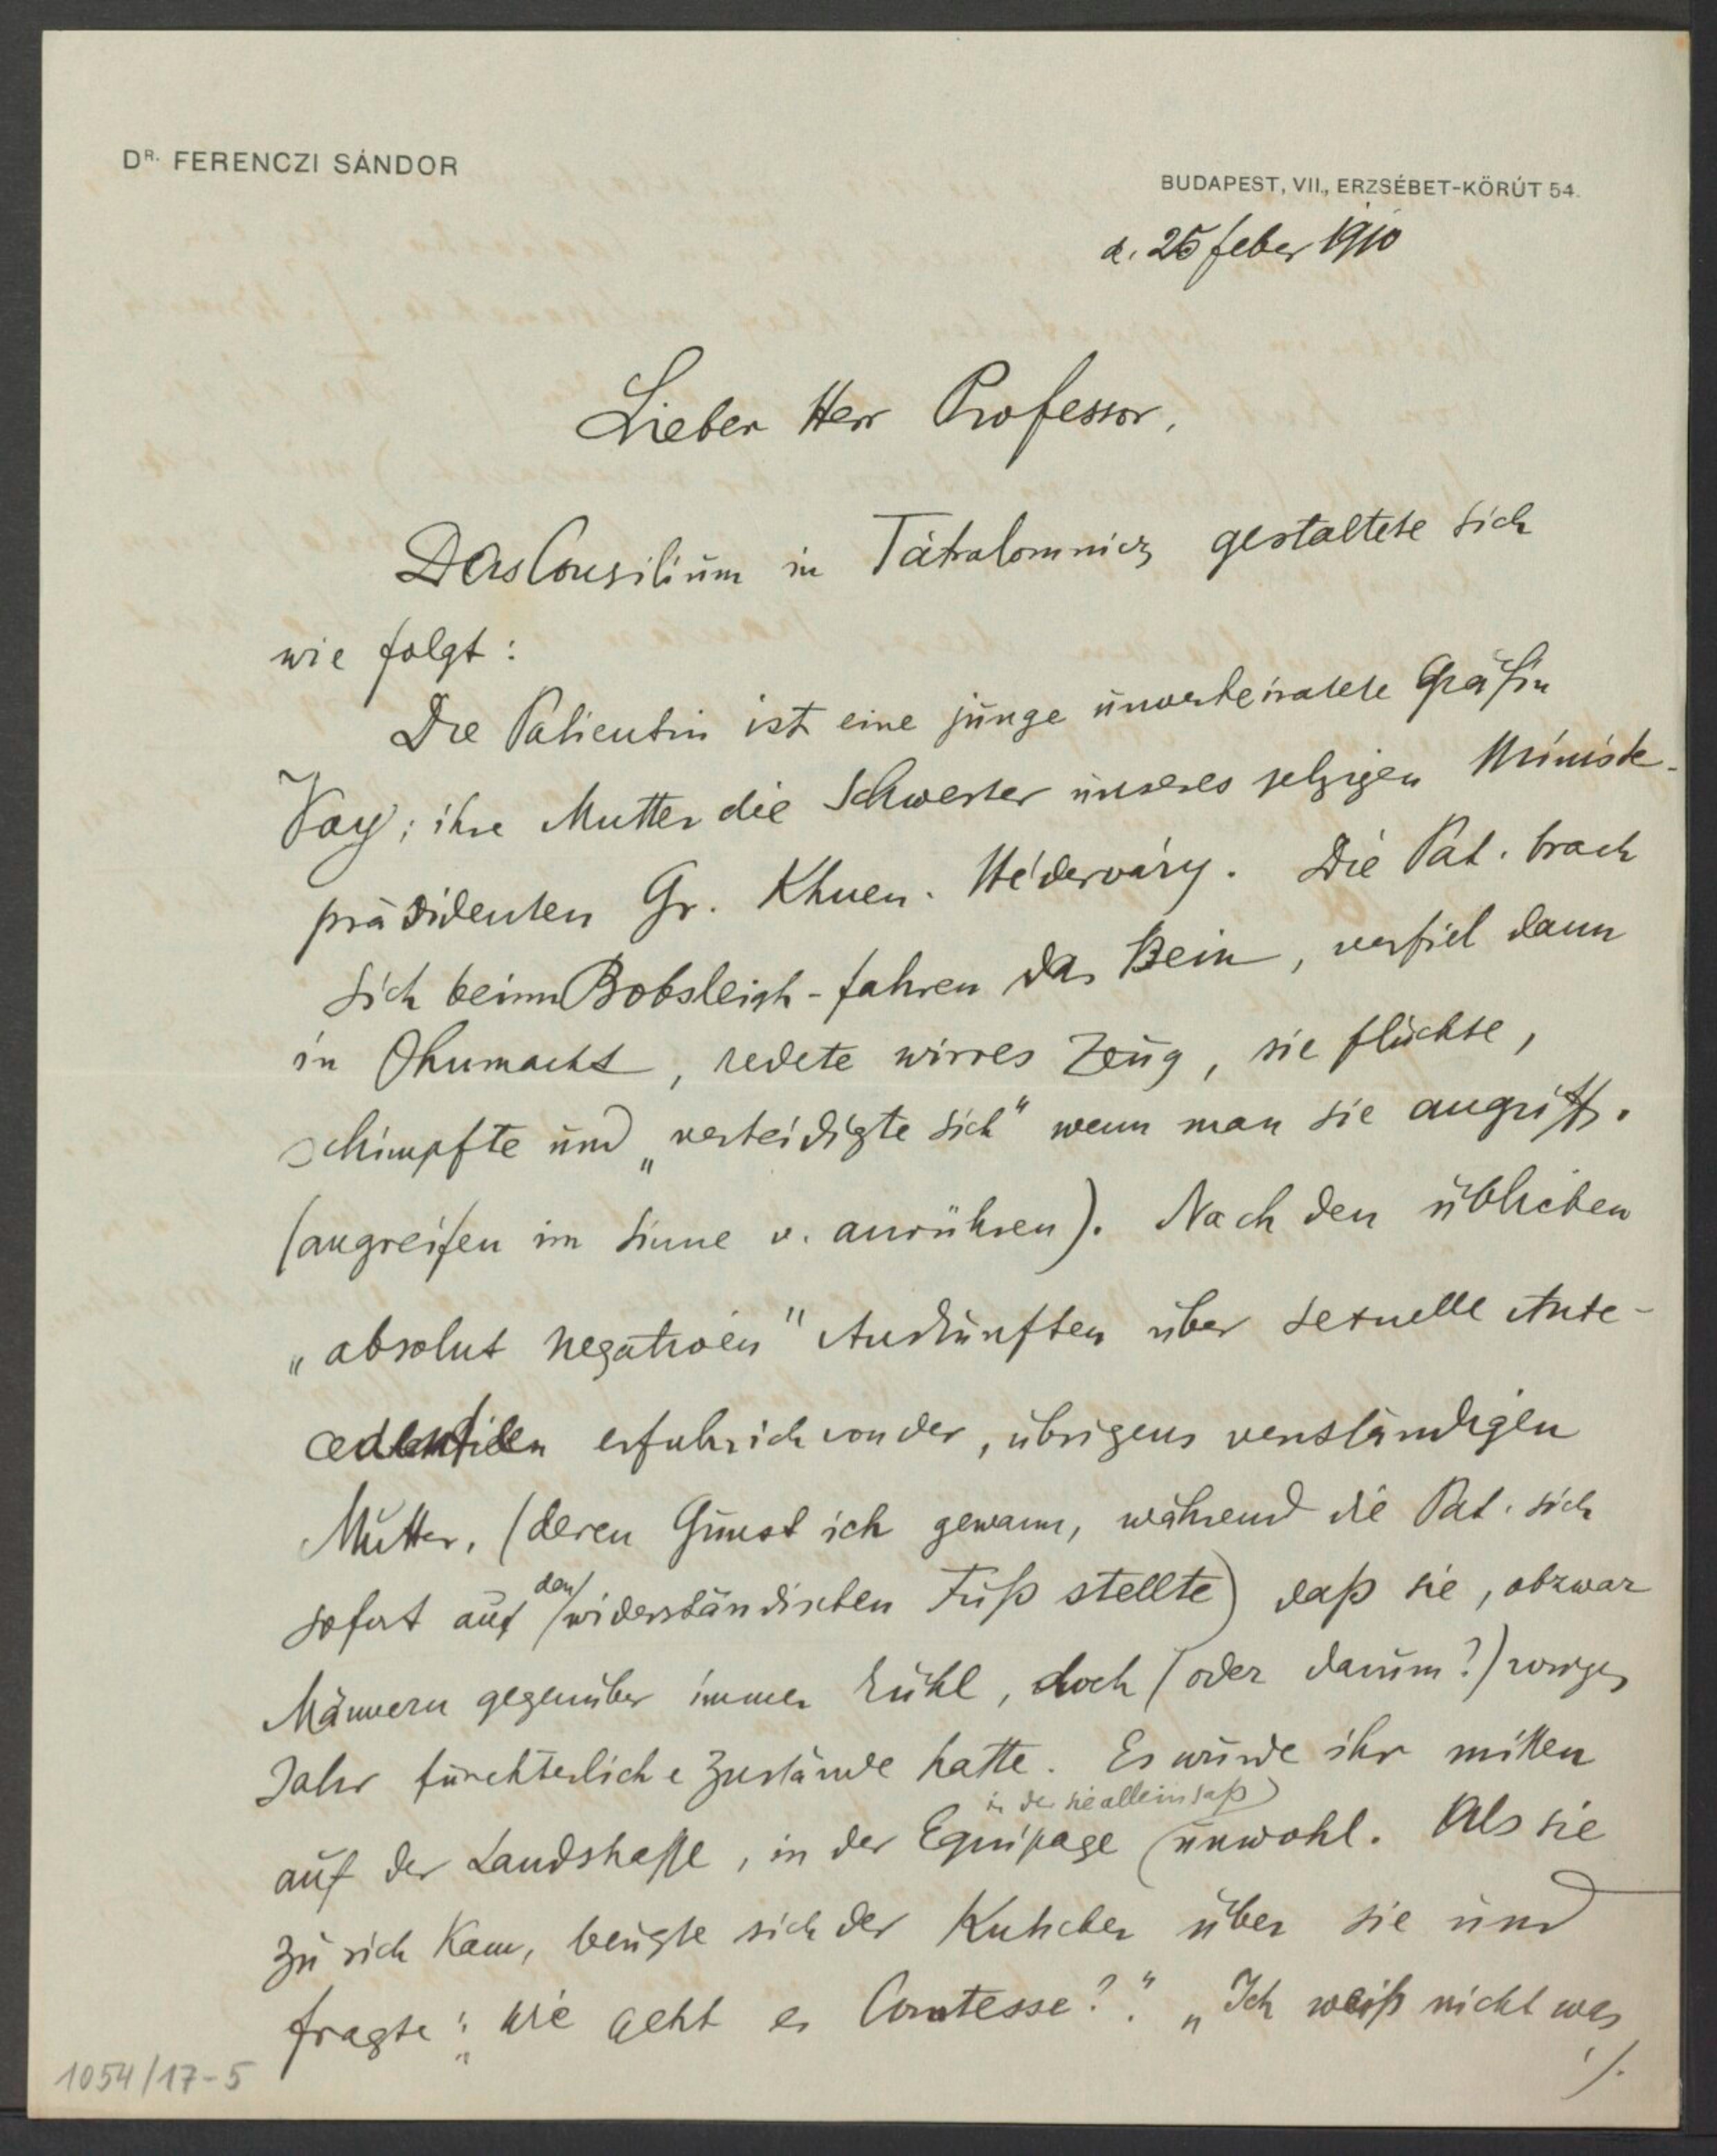 DR. FERENCZI SÁNDOR
BUDAPEST, VII., ERZSÉBET-KÖRÚT 54.
d. 25 feber 1910
Lieber Herr Professor,
Das Consilium in Tátralomnicz gestaltete sich
wie folgt:
Die Patientin ist eine junge unverheiratete Gräfin
Vay; ihre Mutter die Schwester unseres jetzigen Ministe-
präsidenten Gr. Khuen-Héderváry. Die Pat. brach
sich beim Bobsleigh-fahren das Bein, verfiel dann
in Ohnmacht, redete wirres Zeug, sie fluchte,
schimpfte und „verteidigte sich" wenn man sie angriff.
(angreifen im Sinne v. anrühren). Nach den üblichen
„absolut negativen" Auskünften über sexuelle Ante-
cedentien erfuhr ich von der, übrigens verständigen
Mutter, (deren Gunst ich gewann, während die Pat. sich
sofort auf den widerständischen Fuß stellte) daß sie, obzwar
Männern gegenüber immer kühl, doch (oder darum?) voriges
Jahr fürchterliche Zustände hatte. Es wurde ihr mitten
auf der Landstraße, in der Equipage (in der sie allein saß) unwohl. Als sie
zu sich kam, beugte sich der Kutscher über sie und
fragte: „Wie geht es Comtesse?." „Ich weiß nicht was
./.
1054/17-5